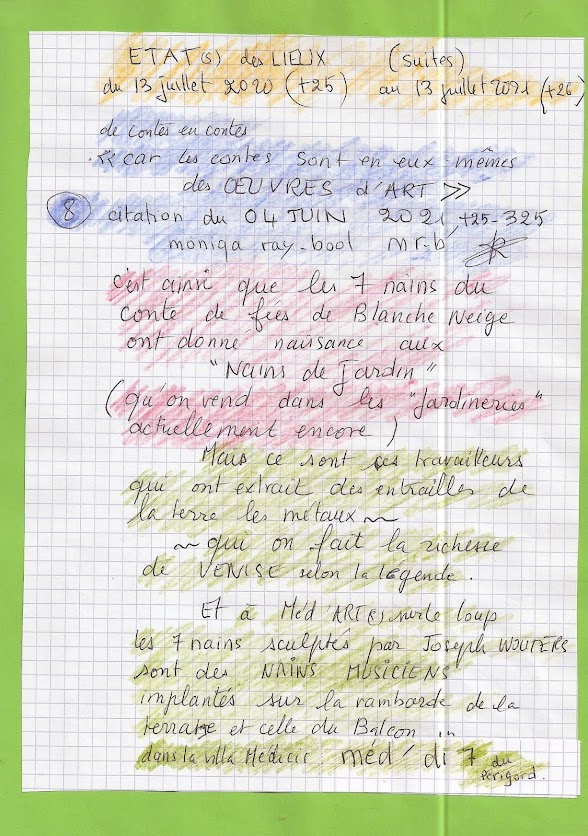 ETAT(s) des LIEUX (suites)
du 13 juillet 2020 (+25) au 13 juillet 2021 (+26)
de contes en contes
<< car les contes sont en eux-mêmes
des ŒUVRES d'ART >>
8 citation du 04 JUIN 2021, +25-325
moniqa ray-bool mr-b
c'est ainsi que les 7 nains du
conte de fées de Blanche Neige
ont donné naissance aux
"Nains de Jardin"
(qu'on vend dans les "Jardineries"
actuellement encore)
Mais ce sont ces travailleurs
qui ont extrait des entrailles de
la terre les métaux ~
~ qui on fait la richesse
de VENISE selon la légende.
Et à Méd'ART(s) sur le loup
les 7 nains sculptés par Joseph WOUTERS
sont des NAINS MUSICIENS
implantés sur la rambarde de la
terrasse et celle du Balcon
dans la villa Médicis méd' di 7 du
Périgord.